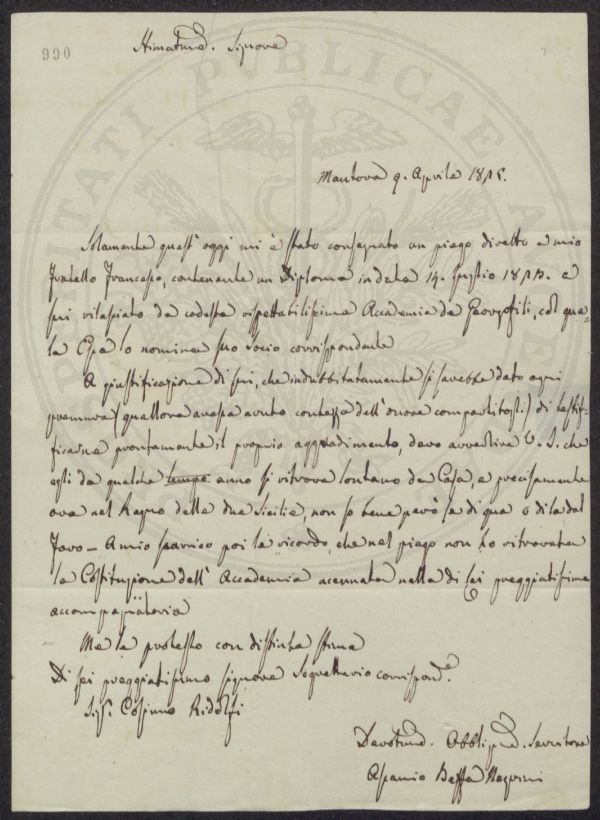 990
Stimatmo. Signore
Mantova 9. Aprile 1815.
Solamente quest' oggi mi è stato consegnato un piego diretto a mio
Fratello Francesco, contenente un Diploma in data 14. 18 e
lui rilasciato da codesta rispettabilissima Accademia de Georgofili, col qua=
le Essa lo nomina suo Socio corrispondente
A giustificazione di lui, che indubbitatamente si sarebbe dato ogni
premura (quallora avesse avuto contezza dell' onore compartitogli) di testif=
ficarne prontamente il proprio aggradimento, devo avvertire V. S. che
egli da qualche tempo anno si ritrova lontano da Casa, e precisamente
ora nel Regno delle due Sicilie, non so bene però se di qua o di la dal
Faro — A mio scarico poi le ricordo, che nel piego non ho ritrovata
la Costituzione dell' Accademia accennata nella di Lei preggiatissima
accompagnatoria
Me le protesto con distinta stima
Di Lei preggiatissimo signore Segrettario corrispond.e
Sig.r Cosimo Ridolfi
Devotmo. Obbligmo. Servitore
Ascanio Beffa Negrini
PVBLICAE